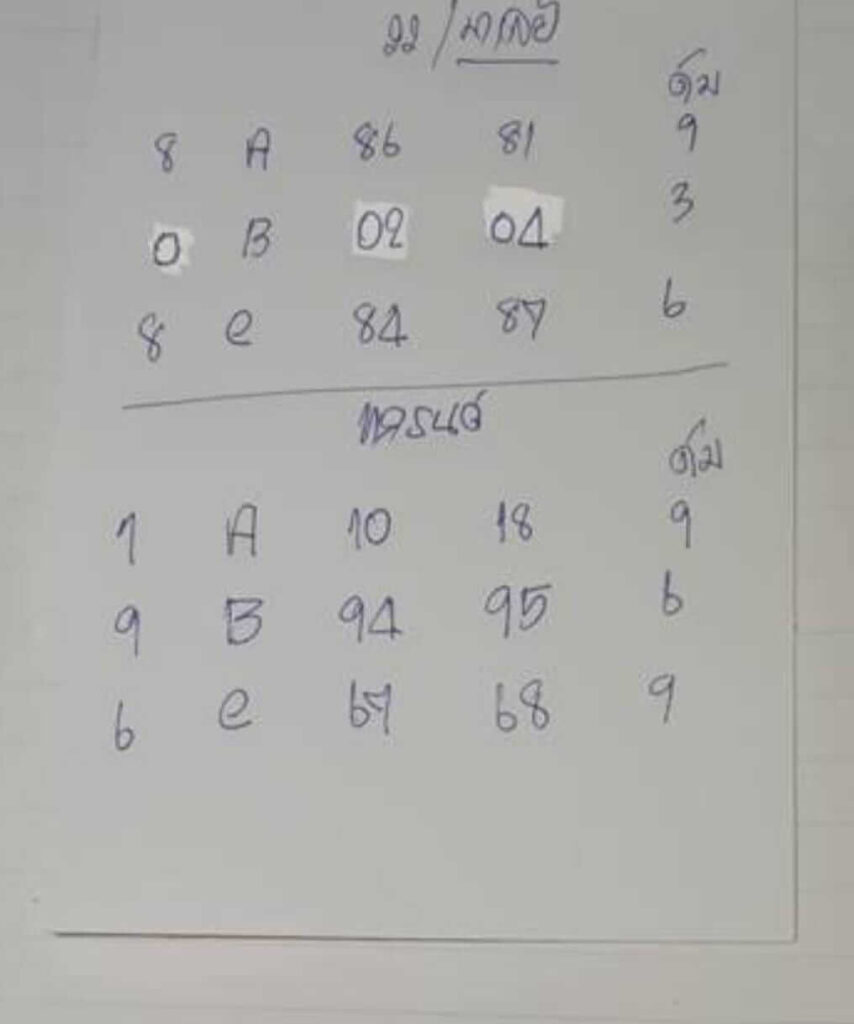 22 / มาเลย์
ดับ
8 A 86 81 9
0 B 02 04 3
8 C 84 87 6
เทรนด์
ดับ
1 A 10 18 9
9 B 94 95 6
6 C 67 68 9